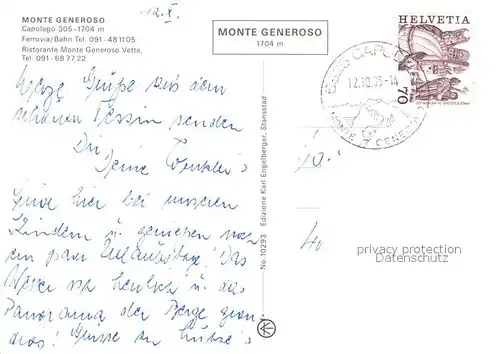 MONTE GENEROSO
Capolago 305-1704 m
Ferrovia/Bahn Tel. 091-48 11 05
Ristorante Monte Generoso Vetta,
Tel. 091-68 77 22
12.X.
MONTE GENEROSO
1704 m
HELVETIA
70
12.10.83-14
MONTE GENEROSO
Grüße aus dem
schönen Tessin senden
Dir
Deine
Sind hier bei unseren
Kindern u. genießen noch
ein paar Urlaubstage! Das
ist herrlich u. das
Panorama der Berge gran-
dios! Grüsse an
No. 10293 Edizione Karl Engelberger, Stansstad
privacy protection
Datenschutz